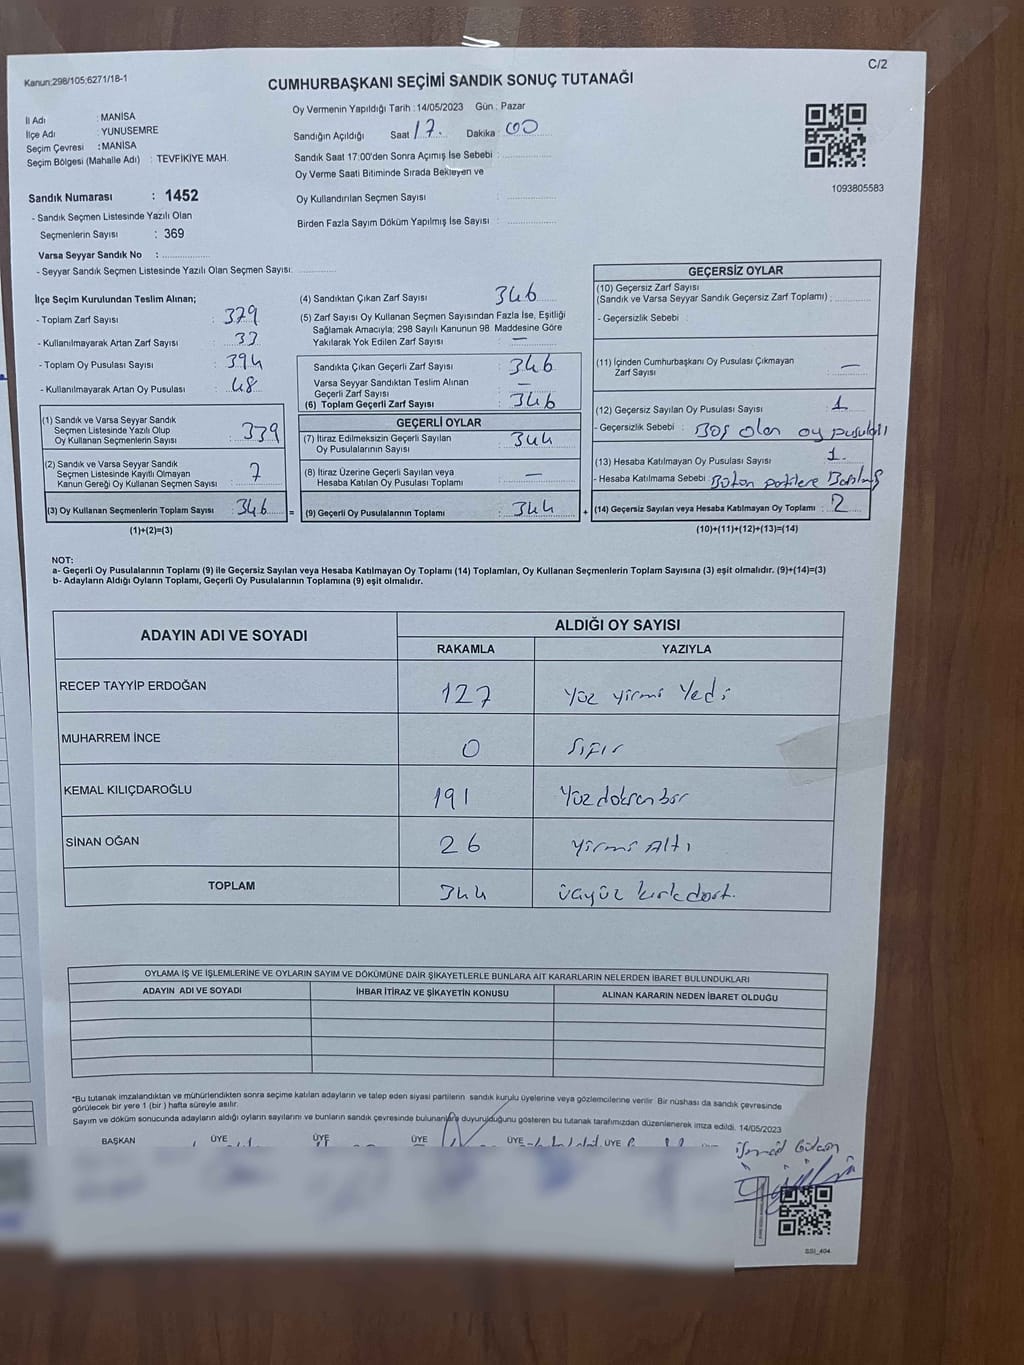 C/2
Kanun:298/105;6271/18-1
CUMHURBAŞKANI SEÇİMİ SANDIK SONUÇ TUTANAĞI
İl Adı : MANİSA
İlçe Adı : YUNUSEMRE
Seçim Çevresi : MANİSA
Seçim Bölgesi (Mahalle Adı) : TEVFİKİYE MAH.
Oy Vermenin Yapıldığı Tarih : 14/05/2023 Gün : Pazar
Sandığın Açıldığı Saat 17. Dakika : 00
Sandık Saat 17:00'den Sonra Açımış İse Sebebi :
Oy Verme Saati Bitiminde Sırada Bekleyen ve
Oy Kullandırılan Seçmen Sayısı :
Birden Fazla Sayım Döküm Yapılmış İse Sayısı :
1093805583
Sandık Numarası : 1452
- Sandık Seçmen Listesinde Yazılı Olan
Seçmenlerin Sayısı : 369
Varsa Seyyar Sandık No :
- Seyyar Sandık Seçmen Listesinde Yazılı Olan Seçmen Sayısı:
İlçe Seçim Kurulundan Teslim Alınan;
- Toplam Zarf Sayısı : 379
- Kullanılmayarak Artan Zarf Sayısı : 33
- Toplam Oy Pusulası Sayısı : 394
- Kullanılmayarak Artan Oy Pusulası : 48
(1) Sandık ve Varsa Seyyar Sandık
Seçmen Listesinde Yazılı Olup
Oy Kullanan Seçmenlerin Sayısı : 339
(2) Sandık ve Varsa Seyyar Sandık
Seçmen Listesinde Kayıtlı Olmayan
Kanun Gereği Oy Kullanan Seçmen Sayısı : 7
(3) Oy Kullanan Seçmenlerin Toplam Sayısı : 346 =
(1)+(2)=(3)
(4) Sandıktan Çıkan Zarf Sayısı 346
(5) Zarf Sayısı Oy Kullanan Seçmen Sayısından Fazla İse, Eşitliği
Sağlamak Amacıyla; 298 Sayılı Kanunun 98. Maddesine Göre
Yakılarak Yok Edilen Zarf Sayısı : —
Sandıkta Çıkan Geçerli Zarf Sayısı : 346
Varsa Seyyar Sandıktan Teslim Alınan
Geçerli Zarf Sayısı : —
(6) Toplam Geçerli Zarf Sayısı : 346
GEÇERLİ OYLAR
(7) İtiraz Edilmeksizin Geçerli Sayılan
Oy Pusulalarının Sayısı : 344
(8) İtiraz Üzerine Geçerli Sayılan veya
Hesaba Katılan Oy Pusulası Toplamı : —
(9) Geçerli Oy Pusulalarının Toplamı : 344 +
GEÇERSİZ OYLAR
(10) Geçersiz Zarf Sayısı
(Sandık ve Varsa Seyyar Sandık Geçersiz Zarf Toplamı) :
- Geçersizlik Sebebi :
(11) İçinden Cumhurbaşkanı Oy Pusulası Çıkmayan
Zarf Sayısı : —
(12) Geçersiz Sayılan Oy Pusulası Sayısı : 1
- Geçersizlik Sebebi : Boş olan oy pusulası
(13) Hesaba Katılmayan Oy Pusulası Sayısı : 1.
- Hesaba Katılmama Sebebi : Bütün partilere Basılmış
(14) Geçersiz Sayılan veya Hesaba Katılmayan Oy Toplamı : 2
(10)+(11)+(12)+(13)=(14)
NOT:
a- Geçerli Oy Pusulalarının Toplamı (9) ile Geçersiz Sayılan veya Hesaba Katılmayan Oy Toplamı (14) Toplamları, Oy Kullanan Seçmenlerin Toplam Sayısına (3) eşit olmalıdır. (9)+(14)=(3)
b- Adayların Aldığı Oyların Toplamı, Geçerli Oy Pusulalarının Toplamına (9) eşit olmalıdır.
ADAYIN ADI VE SOYADI ALDIĞI OY SAYISI
RAKAMLA YAZIYLA
RECEP TAYYİP ERDOĞAN 127 Yüz yirmi Yedi
MUHARREM İNCE 0 Sıfır
KEMAL KILIÇDAROĞLU 191 Yüz doksan bir
SİNAN OĞAN 26 Yirmi Altı
TOPLAM 344 üçyüz kırkdört.
OYLAMA İŞ VE İŞLEMLERİNE VE OYLARIN SAYIM VE DÖKÜMÜNE DAİR ŞİKAYETLERLE BUNLARA AİT KARARLARIN NELERDEN İBARET BULUNDUKLARI
ADAYIN ADI VE SOYADI İHBAR İTİRAZ VE ŞİKAYETİN KONUSU ALINAN KARARIN NEDEN İBARET OLDUĞU
*Bu tutanak imzalandıktan ve mühürlendikten sonra seçime katılan adayların ve talep eden siyasi partilerin sandık kurulu üyelerine veya gözlemcilerine verilir. Bir nüshası da sandık çevresinde
görülecek bir yere 1 (bir ) hafta süreyle asılır.
Sayım ve döküm sonucunda adayların aldığı oyların sayılarını ve bunların sandık çevresinde bulunanlara duyurulduğunu gösteren bu tutanak tarafımızdan düzenlenerek imza edildi. 14/05/2023
BAŞKAN ÜYE ÜYE ÜYE ÜYE ÜYE
SSI_404